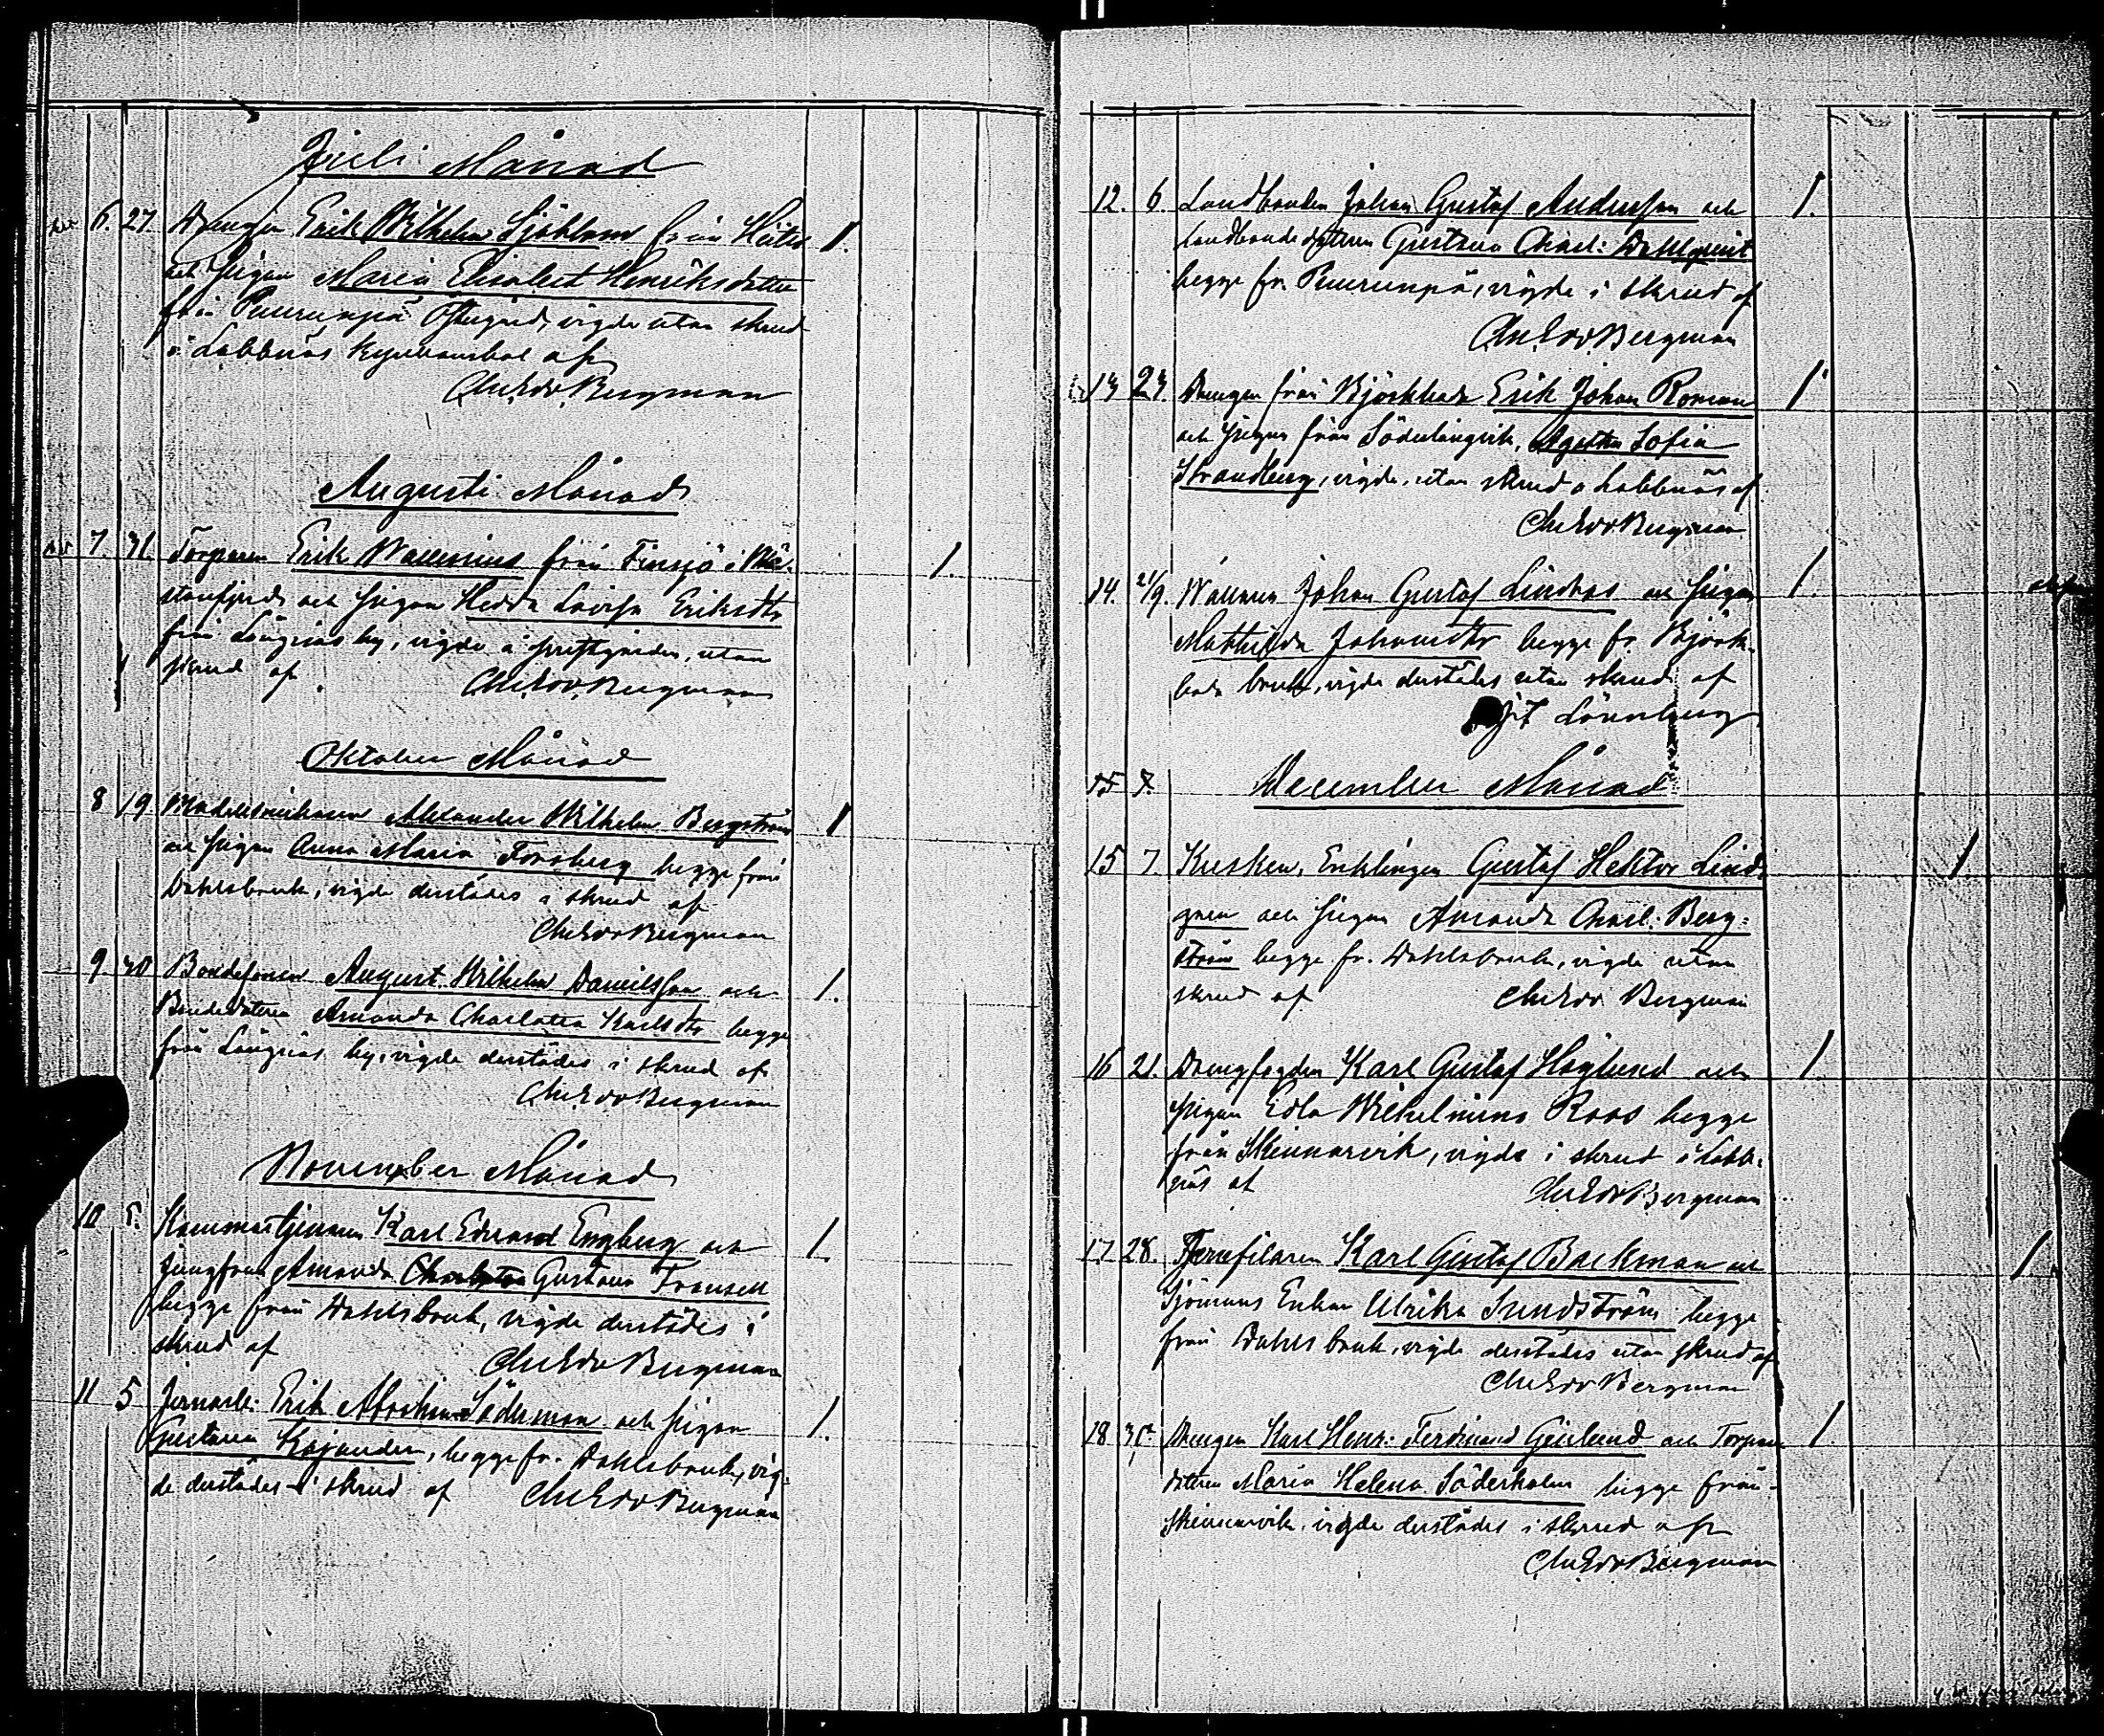 Juli Månad
6. 27 Drengen Erik Wilhelm Sjöblom från Hitis 1.
och Pigan Maria Elisabet Henriksdotter
från Purunpä Östergård, vigde utan skrud
i Labbnäs kyrkoherbol af
Chr Edv. Bergman
Augusti Månad
7. 31 Torparen Erik Wallenius från Finsjö i 1.
och Pigan Hedda Lovisa Eriksdtr
från Långnäs by, vigde å prestgården, utan
skrud af Chr Edv. Bergman
Oktober Månad
8 19 Alexander Wilhelm Bergström 1
och Pigan Anna Maria Forsberg begge från
Dahlsbruk, vigde derstädes i skrud af
Chr Edv Bergman
9. 30 Bondesonen August Wilhelm Danielsson och 1.
Bondedottren Amanda Charlotta Karlsdtr begge
från Långnäs by, vigde derstädes i skrud af
Chr Edv Bergman
November Månad
10 5. Karl Edvard Engberg och 1.
Jungfrun Amanda Charlotta Gustava Fransén
begge från Dahlsbruk, vigde derstädes i
skrud af Chr Edv Bergman
11 5 Jernarb: Erik Abraham Söderman och Pigan 1.
Gustava Kajander, begge fr. Dahlsbruk, vig-
de derstädes i skrud af Chr Edv Bergman
12. 6. Landbonden Johan Gustaf Andersson och 1.
Landbondedottren Gustava Charl: Dahlqvist
begge fr. Purunpä, vigde i skrud af
Chr Edv. Bergman
13 23. Drengen från Björkboda Erik Johan Roman 1
och Pigan från Söderlångvik, Agatha Sofia
Strandberg, vigde, utan skrud å Labbnäs af
Chr Edv Bergman
14. 21/9. Johan Gustaf Lindroos och Pigan 1.
Mathilda Johansdtr begge fr. Björk-
boda bruk, vigde derstädes utan skrud af
Lönnberg
15 7. December Månad
15 7. Kusken, Enklingen Gustaf Hektor Lind- 1
gren och Pigan Amanda Charl: Berg-
ström begge fr. Dahlsbruk, vigde utan
skrud af Chr Edv Bergman
16 21. Drengfogden Karl Gustaf Höglund och 1.
Pigan Edla Wilhelmina Roos begge
från Skinnarvik, vigde i skrud å Labb-
näs af Chr Edv Bergman
17. 28. Jernfilaren Karl Gustaf Backman och 1
Sjömans Enkan Ulrika Sundström begge
från Dahls bruk, vigde derstädes utan skrud af
Chr Edv Bergman
18 Drengen Karl Henr: Ferdinand Genlund och Torpare 1.
dottren Maria Helena Söderholm begge från
Skinnarvik, vigde derstädes i skrud af
Chr Edv Bergman